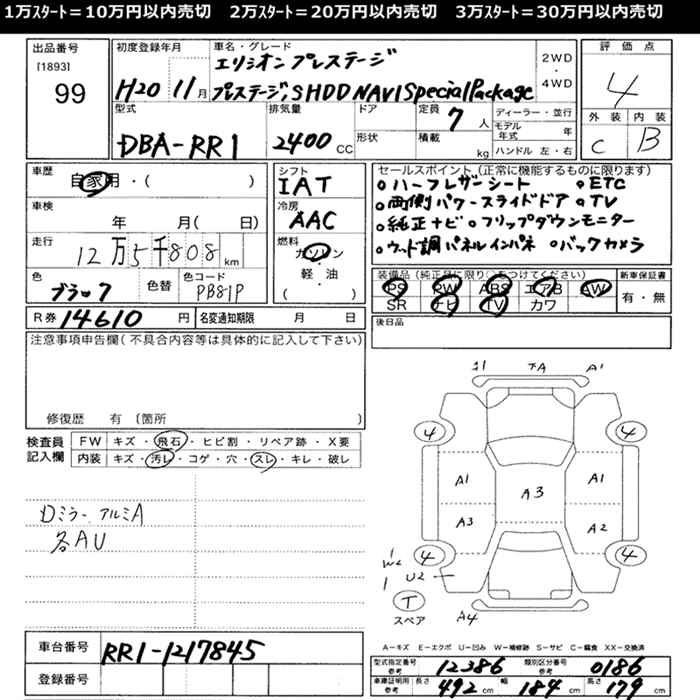 1万スタート＝10万円以内売切　2万スタート＝20万円以内売切　3万スタート＝30万円以内売切
出品番号
[1893]
99
初度登録年月
H20 11月
車名・グレード
エリシオン プレステージ
プレステージ,S HDD NAVI Special Package
2WD
・
4WD
評価点
4
外装 内装
C B
型式
DBA-RR1
排気量
2400 CC
ドア
形状
定員
7人
積載
kg
ディーラー・並行
モデル年式 年
ハンドル 左・右
車歴
自家用・( )
車検
年 月( 日)
走行
12万5千808 km
色
ブラック
色替
色コード
PB81P
シフト
IAT
冷房
AAC
燃料
ガソリン
・
軽・油
( )
セールスポイント(正常に機能するものに限ります)
○ハーフレザーシート ○ETC
○両側パワースライドドア ○TV
○純正ナビ ○フリップダウンモニター
○ウッド調パネルインパネ ○バックカメラ
装備品(純正品に限り○をつけてください)
PS PW ABS エアB AW
SR ナビ TV カワ
新車保証書
有・無
R券 14610 円
名変通知期限 月 日
後日品
注意事項申告欄(不具合内容等は具体的に記入して下さい)
修復歴 有 (箇所 )
検査員
記入欄
FW キズ・飛石・ヒビ割・リペア跡・X要
内装 キズ・汚レ・コゲ・穴・スレ・キレ・破レ
Dミラー アルミA
各AU
下A A1
4 4
A1 A3 A1
A3 A2
4 4
W2
U2
T
スペア
A4
A－キズ E－エクボ U－凹み W－補修跡 S－サビ C－腐食 XX－交換済
車台番号
RR1-1217845
登録番号
型式指定番号
参考
12386
類別区分番号
参考
0186
車庫証明用
参考
長さ 492 cm 幅 184 cm 高さ 179 cm